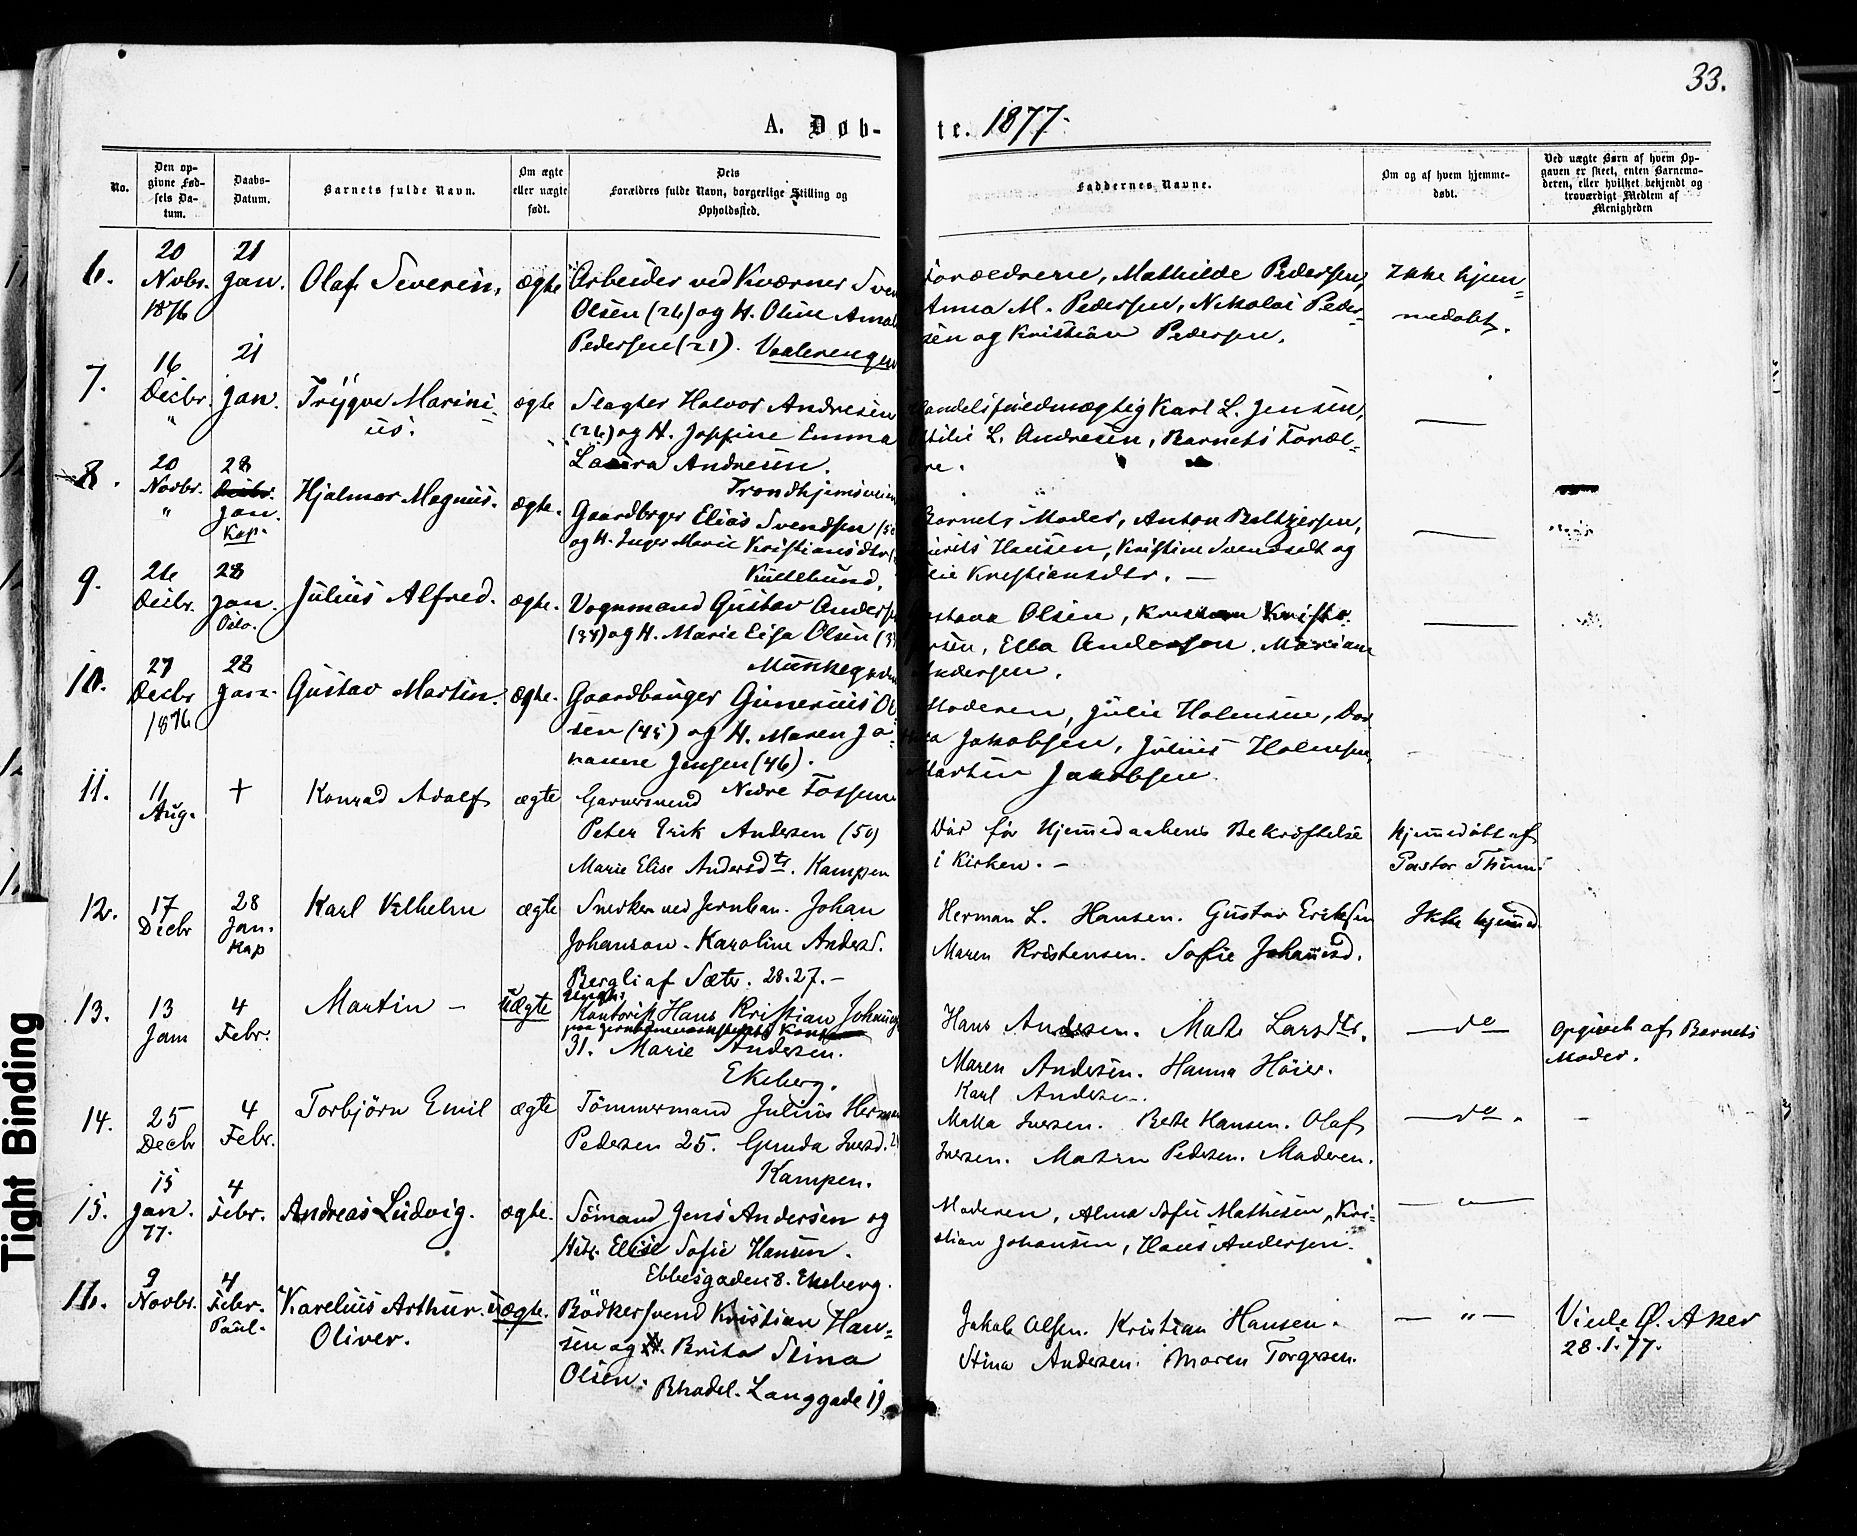 33.
A. Døb- te. 1877.
No.
Den op-
givne Fød-
sels Da-
tum.
Daabs-
Datum.
Barnets fulde Navn.
Om ægte
eller uægte
født.
Dets
Forældres fulde Navn, borgerlige Stilling og
Opholdssted.
Faddernes Navne.
Om og af hvem hjemme-
døbt.
Ved uægte Børn af hvem Op-
gaven er skeet, enten Barnemo-
deren, eller hvilket bekjendt og
troværdigt Medlem af
Menigheden
6.
20
Novbr.
1876
21
Jan.
Olaf Severin,
ægte
Arbeider ved Kværner Sven
Olsen (26) og H. Oline Amal
Pedersen (21). Vaalerengen
Forældrene, Mathilde Pedersen,
Anna M. Pedersen, Nikolai Peder-
sen og Kristian Pedersen.
Ikke hjem-
medøbt.
7.
16
Decbr.
"
21
Jan.
Trygve Marini-
us.
ægte
Slagter Halvor Andresen
(26) og H. Josefine Emma
Laura Andresen.
Trondhjemsveien
Handelsfuldmægtig Karl L. Jensen,
L. Andresen, Barnets Foræl-
dre.
8.
20
Novbr.
"
28
Jan.
Kap.
Hjalmar Magnus.
ægte.
Gaardbrger Elias Svendsen
og H. Inger Marie Kristiansdtr
Barnets Moder, Anton Baltzersen,
Hansen, Kristine Svendsdt og
Kristiansdtr. —
9.
26
Decbr.
28
Jan.
Oslo.
Julius Alfred.
ægte.
Vognmand Gustav Anders
(34) og H. Marie Elisa Olsen
Munkegaden
Olsen, Kristian Kristo-
Ella Anderson. Mariane
Andersen.
10.
27
Decbr
1876
28
Jan.
Gustav Martin.
ægte.
Gaardbruger Gunerius Ol-
sen (45) og H. Maren Jo-
hanne Jensen (46).
Nedre Fossum
Moderen, Julie Holmsen, Dor
Jakobsen, Julius Holmsen,
Martin Jakobsen.
11.
11
Aug.
+
Konrad Adolf
ægte
Garversvend
Peter Erik Andersen (50)
Marie Elise Andersdtr. Kampen
Død før Hjemmedaabens Bekræftelse
i Kirken. —
Hjemmedøbt af
Pastor Thum
12.
17
Decbr
28
Jan.
Kap
Karl Vilhelm
ægte
Snedker ved Jernban. Johan
Johanson. Karoline Andersd.
Bergli af Sæter. 28. 27. —
Herman L. Hansen. Gustav Eriksen
Maren Kristensen. Sofie Johannesd.
Ikke hjemmed
13.
13
Jan
4
Febr.
Martin —
uægte
Ungk.
Kontorist Hans Kristian Johnn
31. Marie Andersen.
Ekeberg.
Hans Andersen. Mathe Larsdtr.
Maren Andersen. Hanna Höier.
Karl Andersen.
— do —
Opgivet af Barnets
Moder.
14.
25
Decbr
4
Febr.
Torbjörn Emil
ægte
Tömmermand Julius Herman
Pedersen 25. Gunda Iversd.
Kampen.
Iversen. Berte Hansen. Olaf
Iversen. Martin Pedersen. Moderen.
— do.
15.
15
Jan.
77.
4
Febr.
Andreas Ludvig.
ægte.
Sömand Jens Andersen og
Hstr. Elise Sofie Hansen.
Ebbesgaden 8. Ekeberg.
Moderen, Alma Sofie Mathisen, Kri-
stian Johansen, Hans Andersen.
— " —
16.
9
Novbr.
4
Febr.
Paul.
Karelius Arthur.
Oliver.
uægte.
Bödkersvend Kristian Han-
sen og Brita Stina
Olsen. Langgade 19
Jakob Olsen. Kristian Hansen.
Stina Andersen. Maren Torgersen.
— " —
Ø. Aker
28.1.77.
Tight Binding